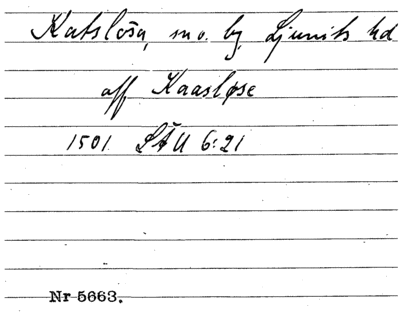 Katslösa, sn o. by, Ljunits hd
aff Kaasløse
1501 LÅU 6:21
Nr 5663.